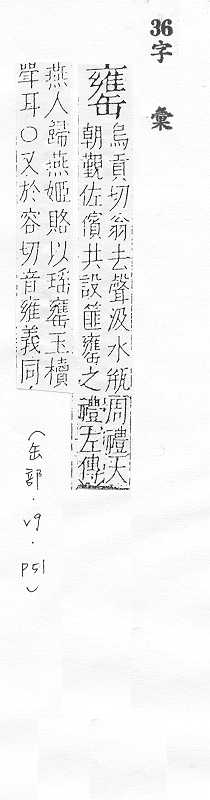 36字彙
罋烏貢切翁去聲汲水瓶周禮天
朝覲佐儐共設匪罋之禮左傳
燕人歸燕姬賂以瑤罋玉櫝
斝耳○又於容切音雍義同
(缶部.v9.P51)